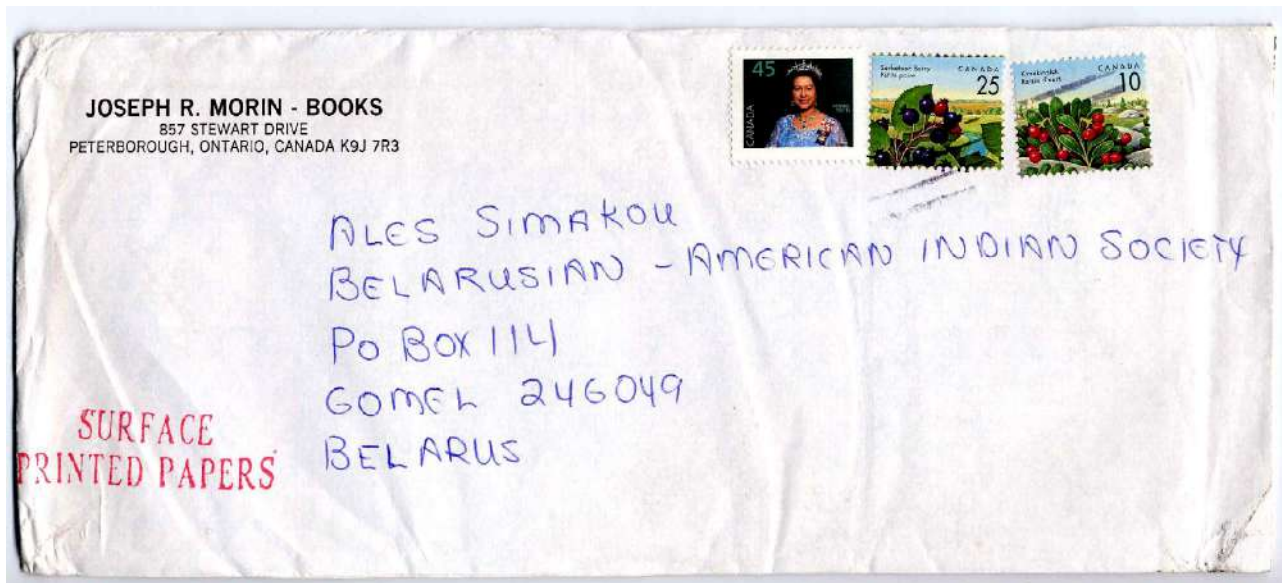 JOSEPH R. MORIN - BOOKS
857 STEWART DRIVE
PETERBOROUGH, ONTARIO, CANADA K9J 7R3
45
CANADA
CANADA
25
CANADA
10
ALES SIMAKOU
BELARUSIAN - AMERICAN INDIAN SOCIETY
PO BOX 114
GOMEL 246049
BELARUS
SURFACE
PRINTED PAPERS